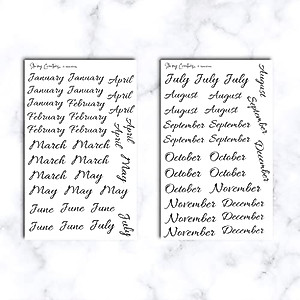 January January April
January January
February February April
February February April
February February April
March March
March March May
March May
May May May
June June June
June June July July
July July July August
August August
August August August
September September September
September September
October October December
October October
October November
November November
November December
December December